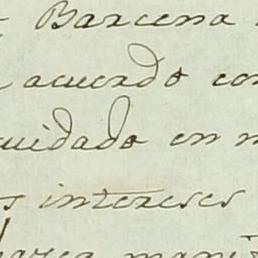 Barcena
acuerdo con
cuidado en m
s intereses